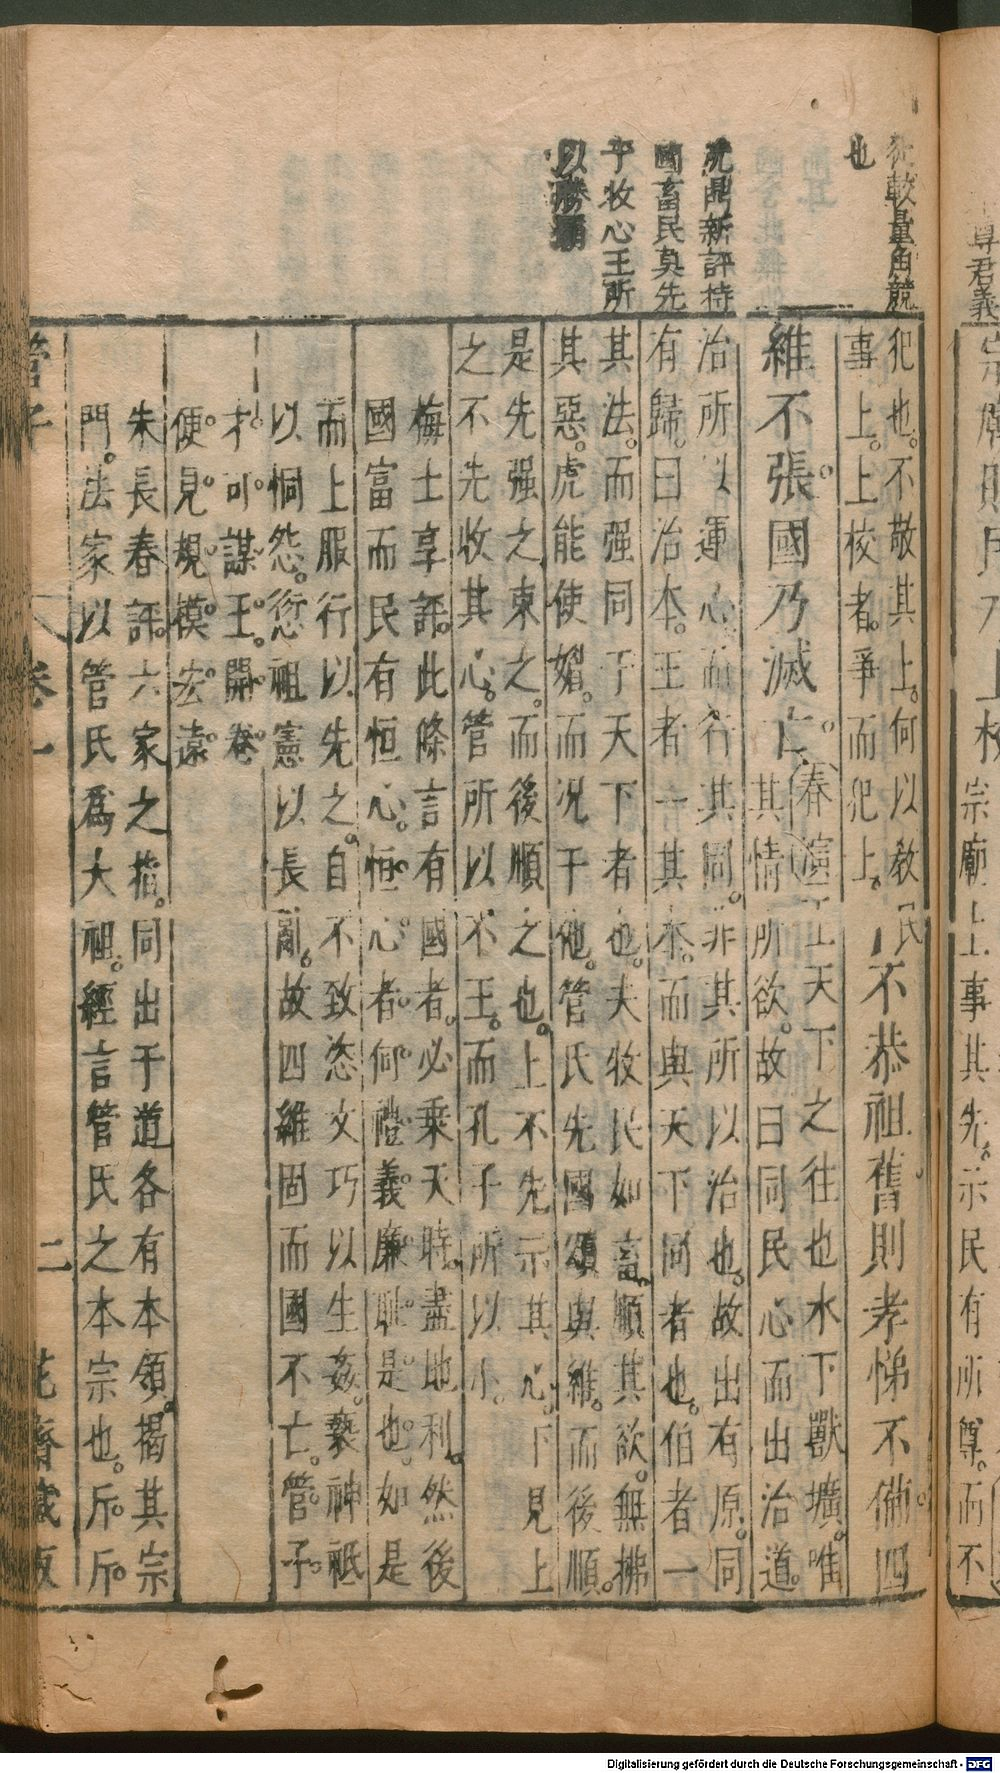 從較量角競
也
沈鼎新評持
國畜民莫先
乎牧心王所
以勝覇
犯也。不敬其上。何以教民
事上。上校者。爭而犯上。
不恭祖舊則孝悌不備四
維不張。國乃滅亡。
春演王天下之往也水下獸壙。唯
其情所欲。故曰同民心而出治道。
治所以運心。而行其同。非其所以治也。故出有原。同
有歸。曰治本。王者一其本。而與天下同者也。伯者一
其法。而强同于天下者也。夫牧民如畜。順其欲。無拂
其惡。虎能使媚。而况于他。管氏先國頌與維。而後順。
是先强之束之。而後順之也。上不先示其心。下見上
之不先收其心。管所以不王。而孔子所以小。
梅士享評。此條言有國者。必乘天時。盡地利。然後
國富而民有恒心。恒心者。何禮義廉耻是也。如是
而上服行以先之。自不致恣文巧以生姦。褻神祇
以恫怨。愆祖憲以長亂。故四維固而國不亡。管子
才可謀王。開卷
便見規模宏遠
朱長春評。六家之指。同出于道各有本領。揭其宗
門。法家以管氏爲大祖。經言管氏之本宗也。斥。斥。
管子
卷一
二
花齋藏板
尊君義
宗廟上事其先。示民有所尊。而不
Digitalisierung gefördert durch die Deutsche Forschungsgemeinschaft - DFG